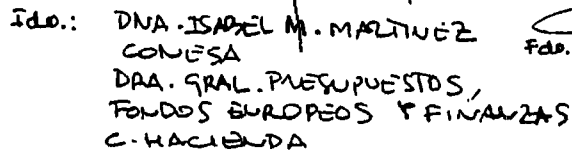 Fdo.: DNA. ISABEL M. MARTINEZ
CONESA
Fdo.
DRA. GRAL. PRESUPUESTOS,
FONDOS EUROPEOS Y FINANZAS
C. HACIENDA